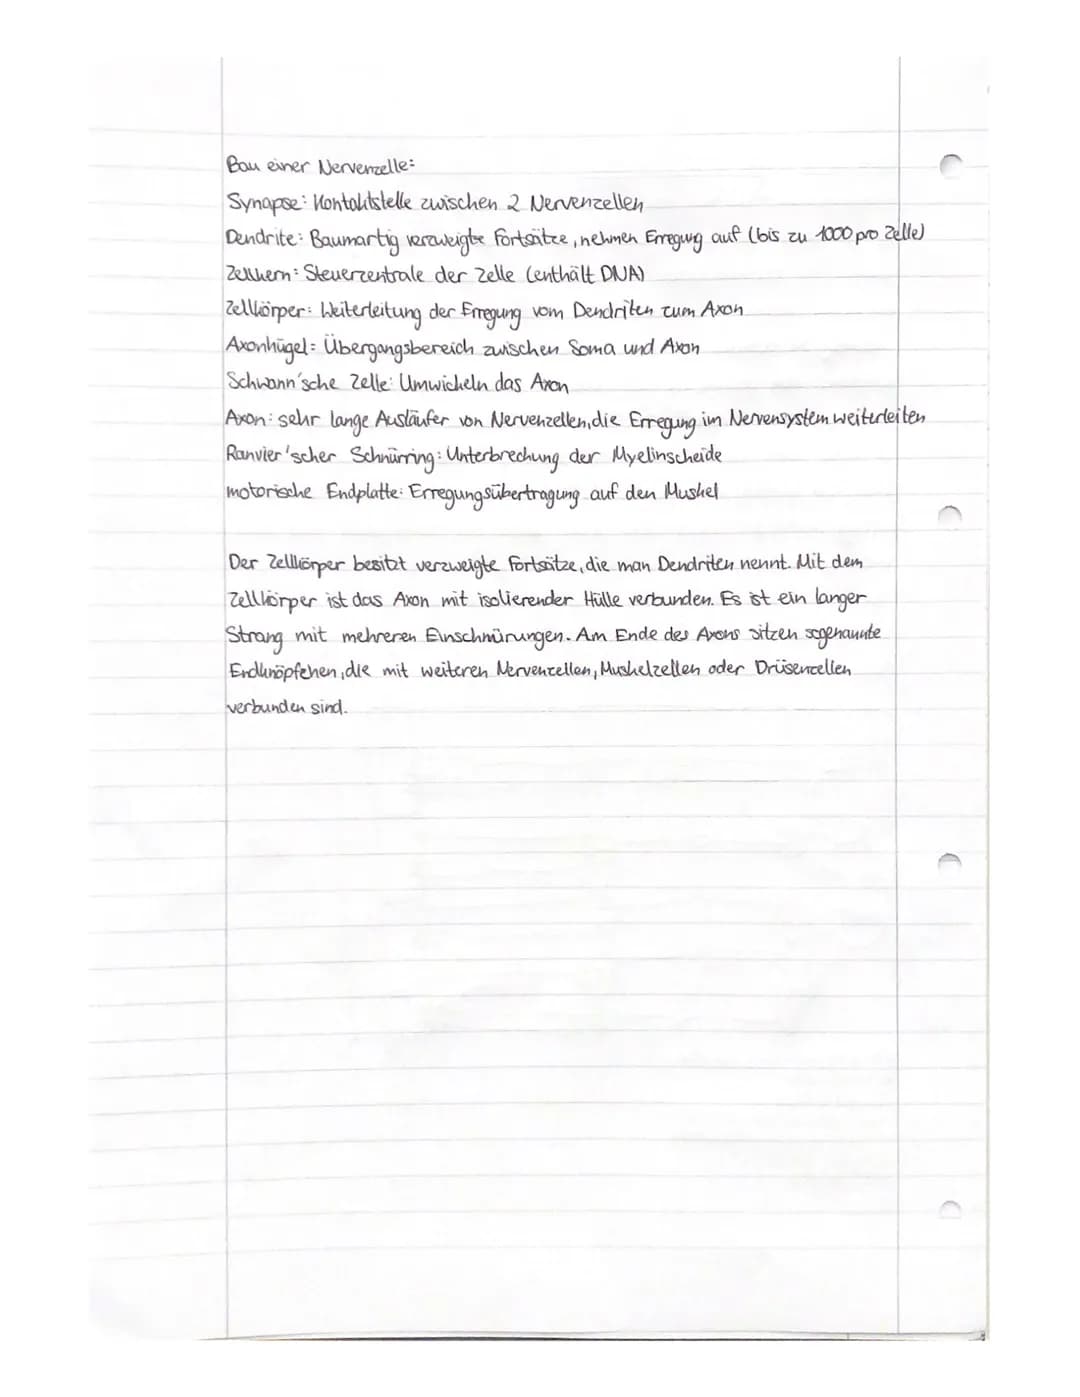 Bau einer Nervenzelle:
Synapse: Kontaktstelle zwischen 2 Nervenzellen
Dendrite: Baumartig verzweigte Fortsätze, nehmen Erregung auf (bis zu 1000 pro Zelle)
Zellkern: Steuerzentrale der Zelle (enthält DNA)
Zellkörper: Weiterleitung der Erregung vom Dendriten zum Axon
Axonhügel: Übergangsbereich zwischen Soma und Axon
Schwann'sche Zelle: Umwickeln das Axon
Axon: sehr lange Ausläufer von Nervenzellen, die Erregung im Nervensystem weiterleiten
Ranvier'scher Schnürring: Unterbrechung der Myelinscheide
motorische Endplatte: Erregungsübertragung auf den Muskel
Der Zellkörper besitzt verzweigte Fortsätze, die man Dendriten nennt. Mit dem
Zellkörper ist das Axon mit isolierender Hülle verbunden. Es ist ein langer
Strang mit mehreren Einschnürungen. Am Ende des Axons sitzen sogenannte
Endknöpfchen, die mit weiteren Nervenzellen, Muskelzellen oder Drüsenzellen
verbunden sind.